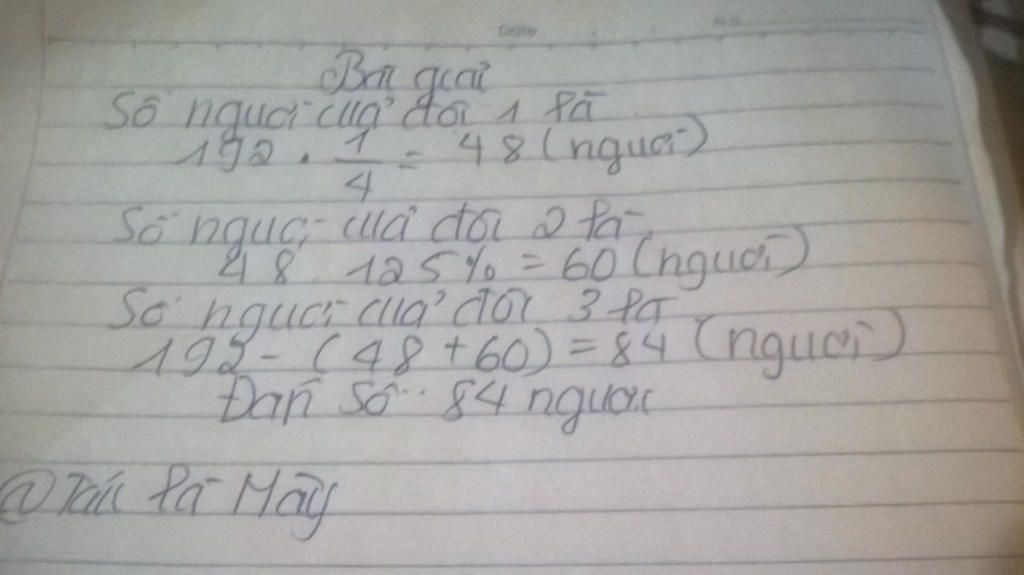 Bài giải
Số người của đội 1 là
192 . 1/4 = 48 (người)
Số người của đội 2 là
48 125% = 60 (người)
Số người của đội 3 là
192 - (48 + 60) = 84 (người)
Đáp số: 84 người
@ là Mây